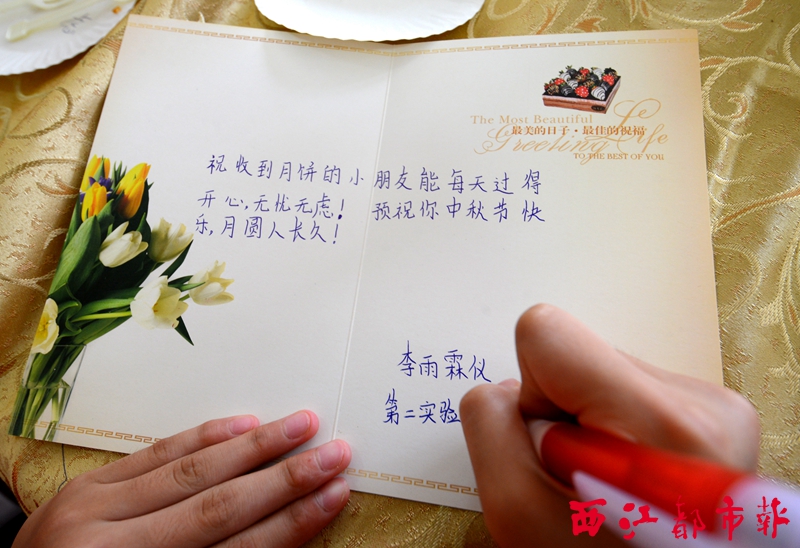 The Most Beautiful Life
最美的日子·最佳的祝福
Greeting
TO THE BEST OF YOU
祝收到月饼的小朋友能每天过得
开心,无忧无虑! 预祝你中秋节快
乐,月圆人长久!
李雨霖仪
第二实验
西江都市报